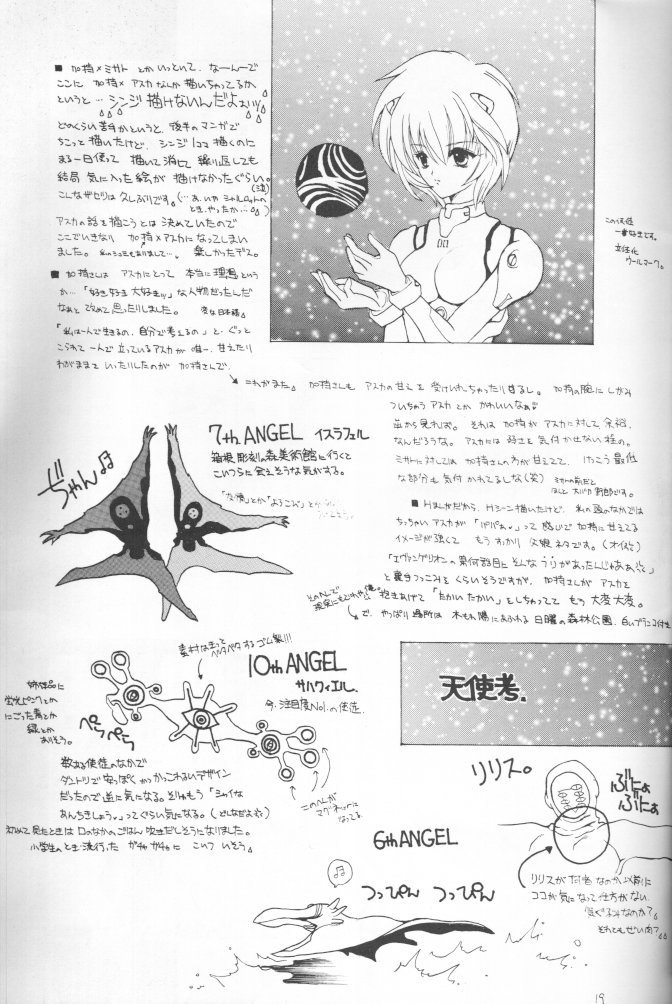 ■ 加持×ミサト とかいっといて、なーんーで
ここに 加持×アスカなんか描いちゃってるか
というと… シンジ描けないんだよぉ
どのくらい苦手かというと、後半のマンガで
ちこっと描いたけど、シンジ1コマ描くのに
まる一日使って 描いて消して 繰り返しても
結局 気に入った絵が 描けなかったぐらい。(泣)
こんなザセツは久しぶりです。
アスカの話を描こうとは 決めていたので
ここでいきなり 加持×アスカになってしまい
ました。 楽しかったデス。
■ 加持さんは アスカにとって 本当に理想という
か…「好き好き 大好きッ」な人物だったんだ
なぁと 改めて思ったりしました。 変な日本語
「私は一人で生きるの、自分で考えるの」と
一人で立っているアスカが 唯一、甘えたり
わがままを いったりしたのが 加持さんで、
この使徒
一番好きです。
女性化
ウールマーク。
これがまた。 加持さんも アスカの甘えを 受けいれちゃったりするし。 加持の腕に しがみ
ついちゃう アスカとか かわいいなぁ
それは 加持が アスカに対して 余裕
なんだろうな。アスカには 好きと 気付かせない
ミサトに対しては 加持さんの方が 甘えてて、けっこう 最低
な部分も 気付かれてるしな(笑)
■ Hほんだから、Hシーン描いたけど、私の
ちっちゃい アスカが 「パパぁ」って感じで 加持に甘えてる
イメージが強くて もうすっかり 父娘ネタです。
「エヴァンゲリオンの第何話目に そんなウリが あったんじゃああ」
と裏手つっこみを くらいそうですが、 加持さんが アスカを
抱きあげて「たかいたかい」を しちゃってて もう大変大変。
で、やっぱり 場所は 木もれ陽に あふれる 日曜の森林公園、白いブランコ付き
7th ANGEL イスラフェル
箱根彫刻の森美術館に行くと
こいつらに 会えそうな気がする。
じゃん
10th ANGEL
サハクィエル。
今、注目度No.1の使徒
素材はきっと
ペタペタするゴム製!!!
蛍光ピンクとか
にごった青とか
緑とか
ありそう。
ぺら
ぺら
数ある使徒のなかで
ダントツで 安っぽく かっこわるいデザイン
だったので 逆に気になる。
って ぐらい 気になる。(どんなだよ)
初めて 見たときは 口のなかのごはん 吹きだしそうになりました。
小学生のとき 流行った ガチャガチャに こいついそう
このへんが
マグネットに
なってる
天使考、
リリス。
ぶにぉ
ぶにぉ
リリスが 何者なのか 以前に
ココが 気になって 仕方がない
ぬいぐるみなのか?
それとも ぜい肉?
6th ANGEL
つっぴん つっぴん
19